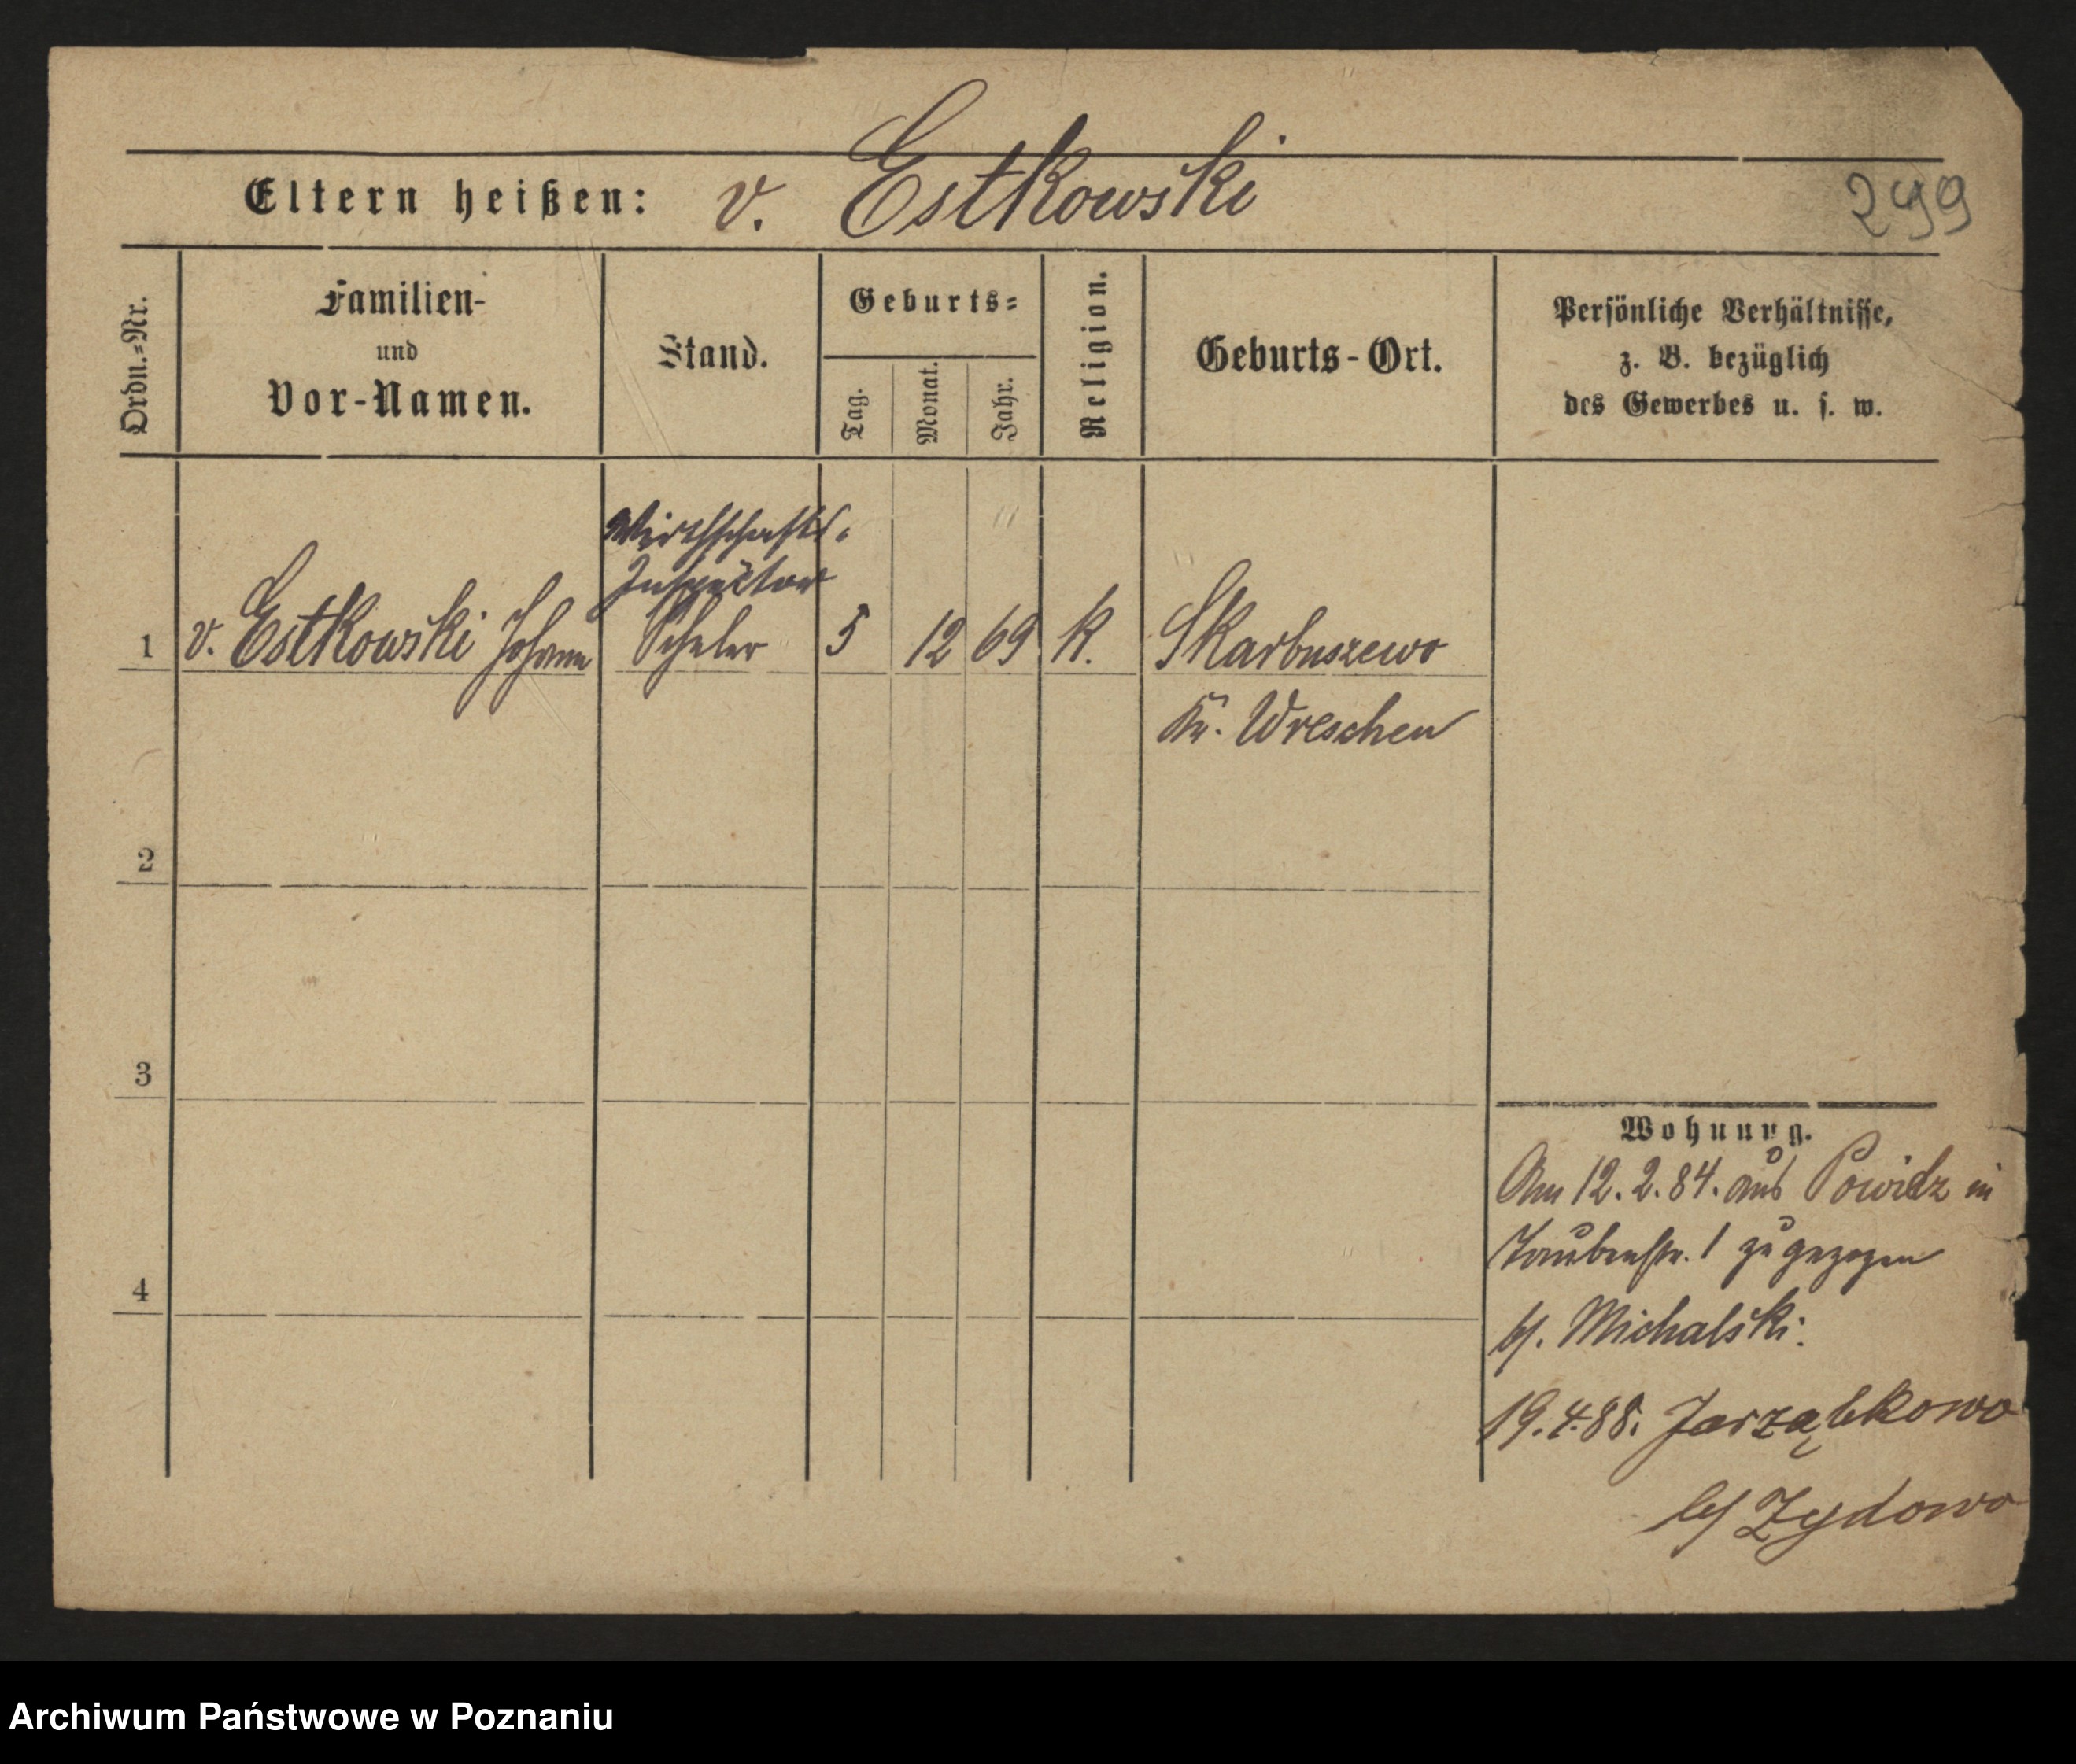 Eltern heißen: v. Estkowski
299
Ordn.=Nr.
Familien-
und
Vor-Namen.
Stand.
Geburts=
Tag.
Monat.
Jahr.
Religion.
Geburts-Ort.
Persönliche Verhältnisse,
z. B. bezüglich
des Gewerbes u. s. w.
Wirthschafts-
Inspector
1 v. Estkowski Johann Schüler 5 12 69 K. Skarbuszewo
Kr. Wreschen
2
3
4
Wohnung.
Am 12. 2. 84. aus Powidz in
Taubenstr. 1 zugezogen
b/. Michalski.
19. 4. 88. Jarząbkowo
b/ Zydowo
Archiwum Państwowe w Poznaniu